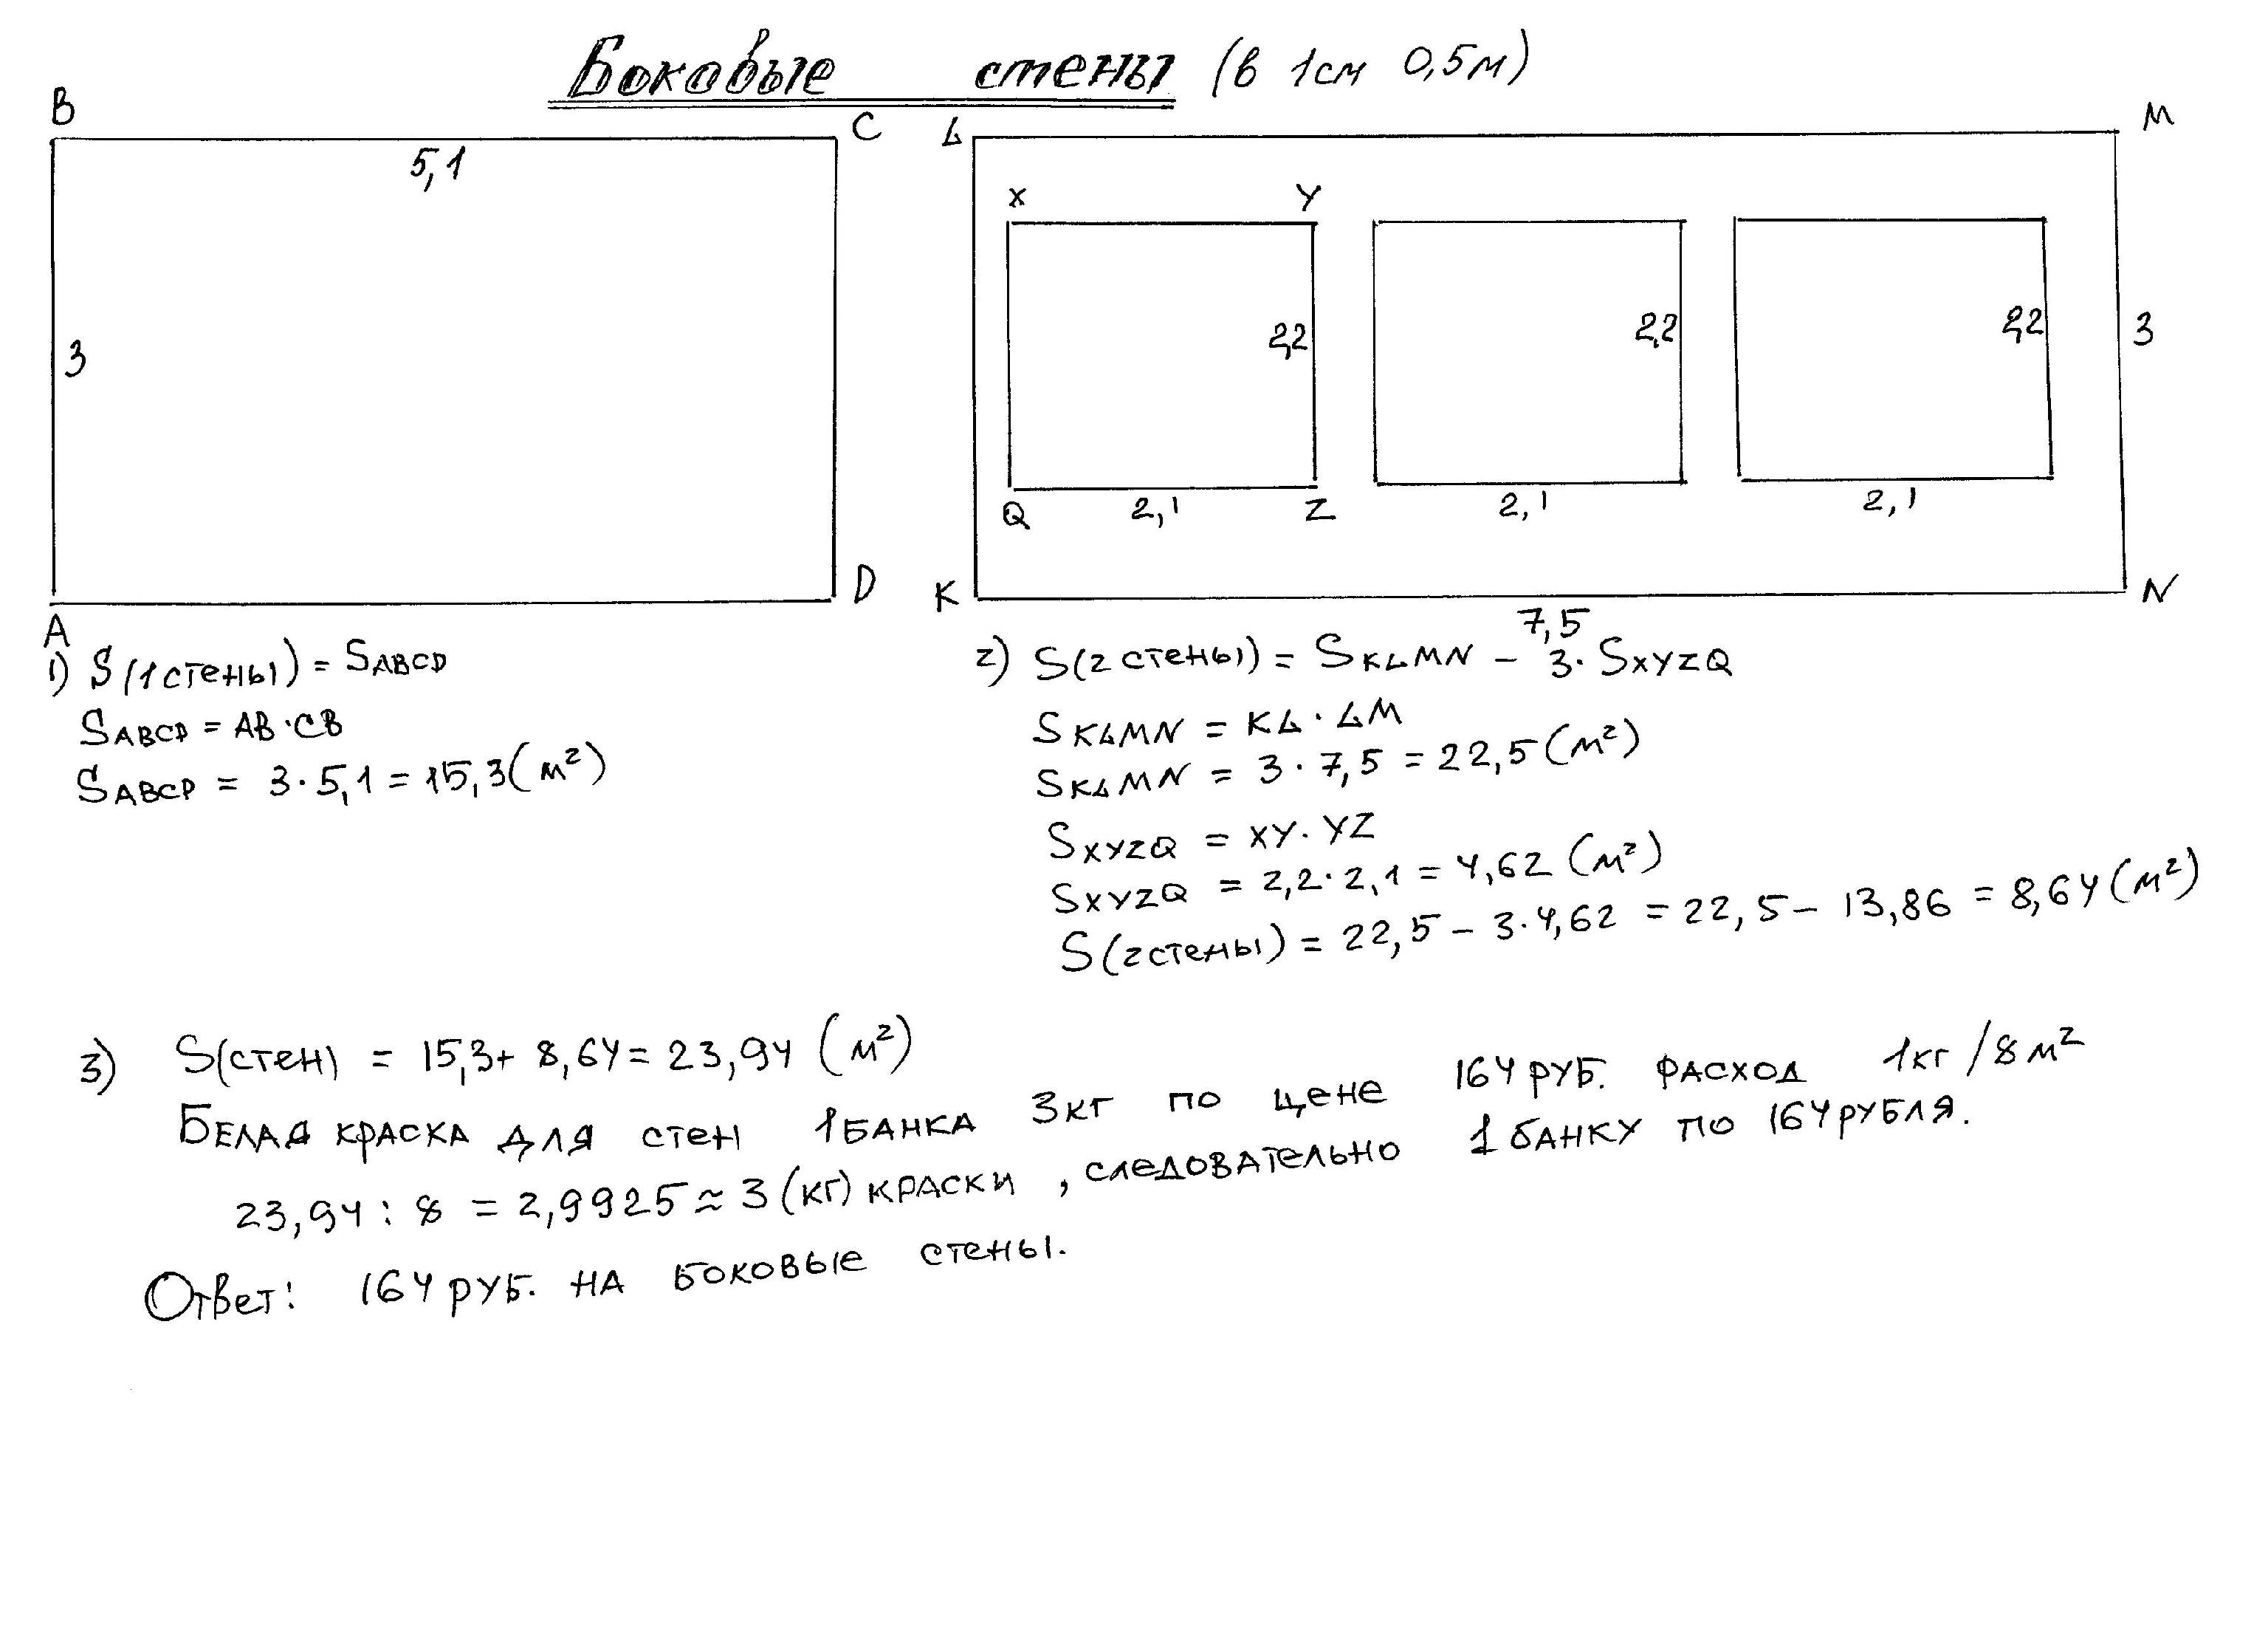 Боковые стены (в 1см 0,5м)
B
C
5,1
3
A
D
L
M
X
Y
2,2
2,2
2,2
3
Q
2,1
Z
2,1
2,1
K
N
7,5
1) S(1 стены) = SABCD
SABCD = AB·CB
SABCD = 3·5,1 = 15,3(м²)
2) S(2 стены) = SKLMN – 3·SXYZQ
SKLMN = KL·LM
SKLMN = 3·7,5 = 22,5(м²)
SXYZQ = XY·YZ
SXYZQ = 2,2·2,1 = 4,62 (м²)
S(2 стены) = 22,5 – 3·4,62 = 22,5 – 13,86 = 8,64(м²)
3) S(стен) = 15,3+ 8,64 = 23,94 (м²)
Белая краска для стен 1 банка 3кг по цене 164 руб. расход 1кг/8м²
23,94 : 8 = 2,9925 ≈ 3(кг) краски, следовательно 1 банку по 164 рубля.
Ответ: 164 руб. на боковые стены.